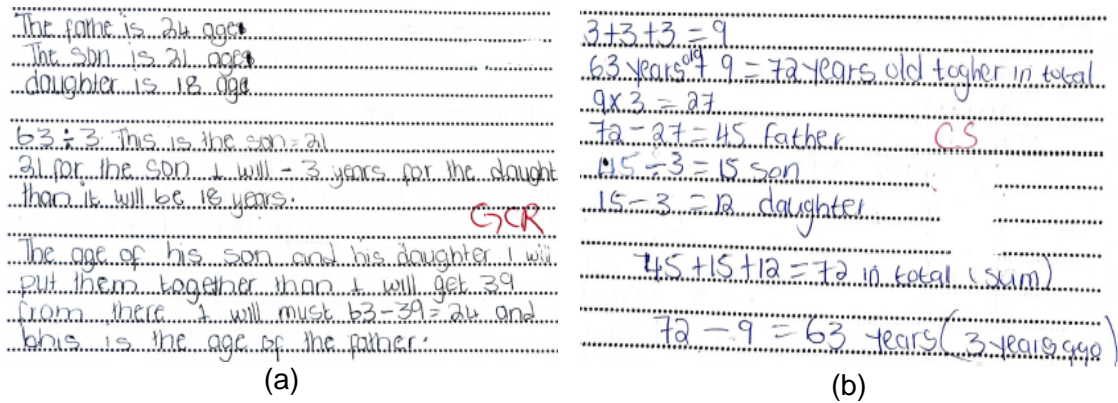 The fathe is 24 age
The son is 21 age
daughter is 18 age
63 ÷ 3 This is the son = 21
21 for the son I will - 3 years for the daught
than it will be 18 years.
GCR
The age of his son and his daughter I will
put them together than I will get 39
from there I will must 63-39=24 and
this is the age of the father.
(a)
3+3+3 = 9
63 years old + 9 = 72 years old togher in total
9x3 = 27
72 - 27 = 45 father
CS
45 ÷ 3 = 15 son
15 - 3 = 12 daughter
45 + 15 + 12 = 72 in total (sum)
72 - 9 = 63 years (3 years ago)
(b)